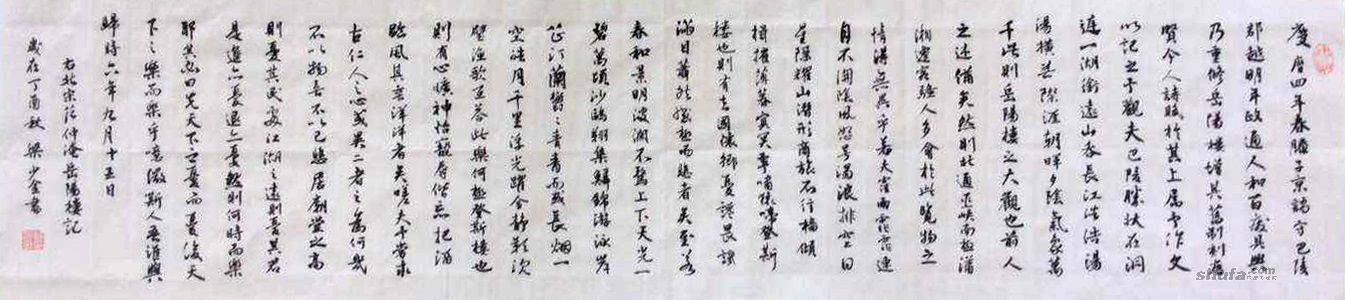 慶曆四年春滕子京謫守巴陵
郡越明年政通人和百廢具興
乃重修岳陽樓增其舊制刻唐
賢今人詩賦於其上屬予作文
以記之予觀夫巴陵勝狀在洞
庭一湖銜遠山吞長江浩浩湯
湯橫無際涯朝暉夕陰氣象萬
千此則岳陽樓之大觀也前人
之述備矣然則北通巫峽南極瀟
湘遷客騷人多會於此覽物之
情得無異乎若夫霪雨霏霏連
月不開陰風怒号濁浪排空日
星隱耀山潛形商旅不行檣傾
楫摧薄暮冥冥虎嘯猿啼登斯
樓也則有去國懷鄉憂讒畏譏
滿目蕭然感極而悲者矣至若
春和景明波瀾不驚上下天光一
碧萬頃沙鷗翔集錦鱗游泳岸
芷汀蘭鬱々青青而或長煙一
空皓月千里浮光躍金靜影沉
璧漁歌互答此樂何極登斯樓也
則有心曠神怡寵辱偕忘把酒
臨風其喜洋洋者矣嗟夫予嘗求
古仁人之心或異二者之為何哉
不以物喜不以己悲居廟堂之高
則憂其民處江湖之遠則憂其君
是進亦憂退亦憂然則何時而樂
耶其必曰先天下之憂而憂後天
下之樂而樂乎噫微斯人吾誰與
歸時六年九月十五日
右北宋范仲淹岳陽樓記
歲在丁酉秋 梁少金書
shufa.com